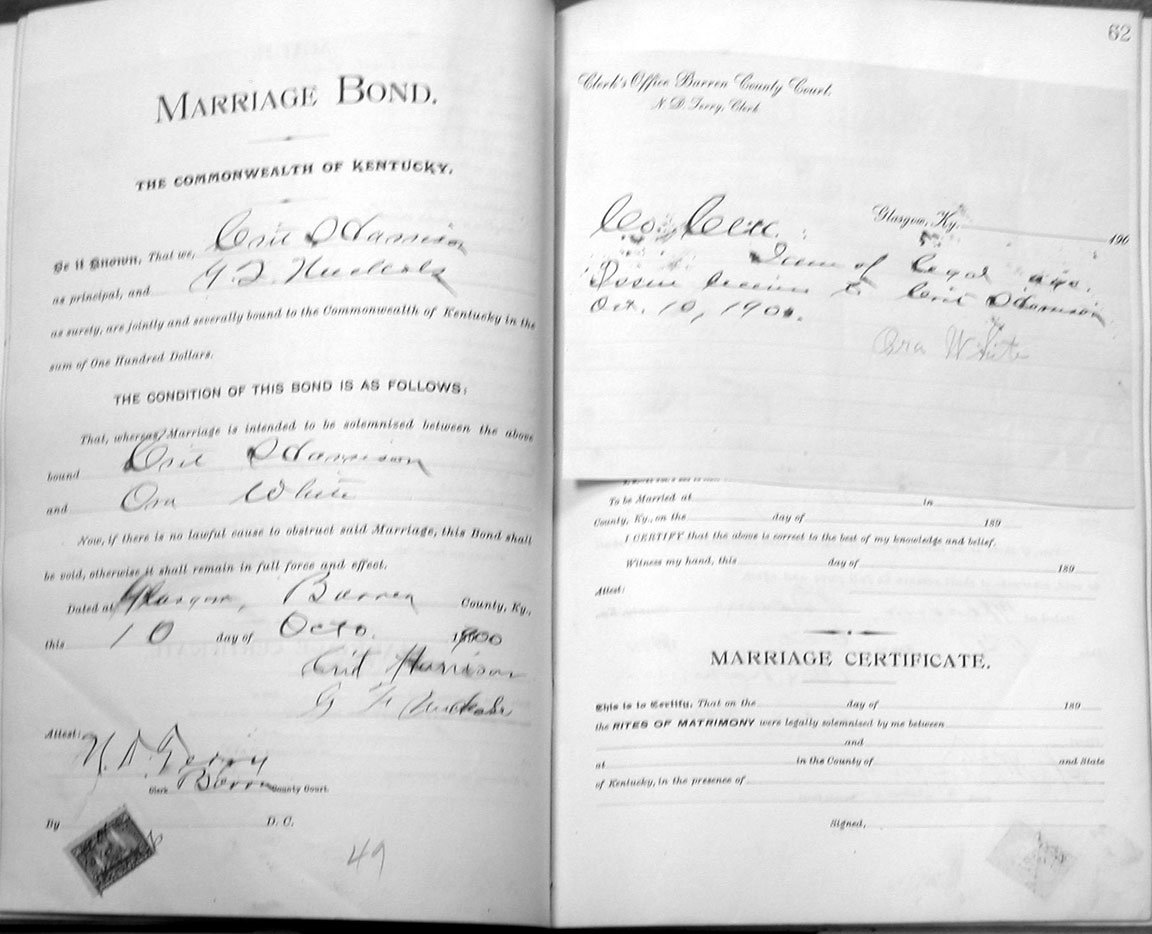 MARRIAGE BOND.
THE COMMONWEALTH OF KENTUCKY.
Be it Known, That we, Harrison
as principal, and Nuckols
as surety, are jointly and severally bound to the Commonwealth of Kentucky in the
sum of One Hundred Dollars.
THE CONDITION OF THIS BOND IS AS FOLLOWS:
That, whereas, Marriage is intended to be solemnised between the above
bound Harrison
and Ora White
Now, if there is no lawful cause to obstruct said Marriage, this Bond shall
be void, otherwise it shall remain in full force and effect.
Dated at Glasgow, Barren County, Ky.,
this 10 day of Octo. 1900
Harrison
Nuckols
Attest:
N. D. Terry
Clerk Barren County Court.
By D. C.
49
62
Clerk's Office Barren County Court,
N. D. Terry, Clerk
Glasgow, Ky. 190
Co. Clk.
I am of legal age.
Issue license to Harrison
Oct. 10, 1900.
Ora White
To be Married at in
County, Ky., on the day of 189
I CERTIFY that the above is correct to the best of my knowledge and belief.
Witness my hand, this day of 189
Attest:
MARRIAGE CERTIFICATE.
This is to Certify, That on the day of 189
the RITES OF MATRIMONY were legally solemnised by me between
and
at in the County of and State
of Kentucky, in the presence of
Signed,